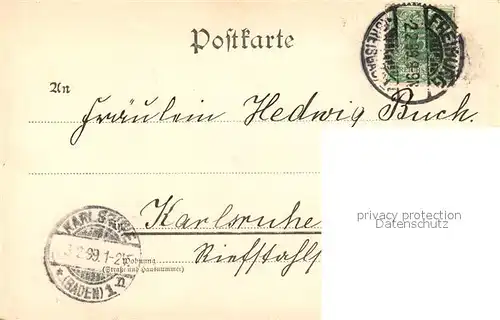 Postkarte
FREIBURG
2.99.
An
Fräulein Hedwig Buch.
privacy protection
Datenschutz
Karlsruhe
KARLSRUHE
3.2.99.1-2N
(BADEN) 1
Riefstahls
Wohnung
(Straße und Hausnummer)